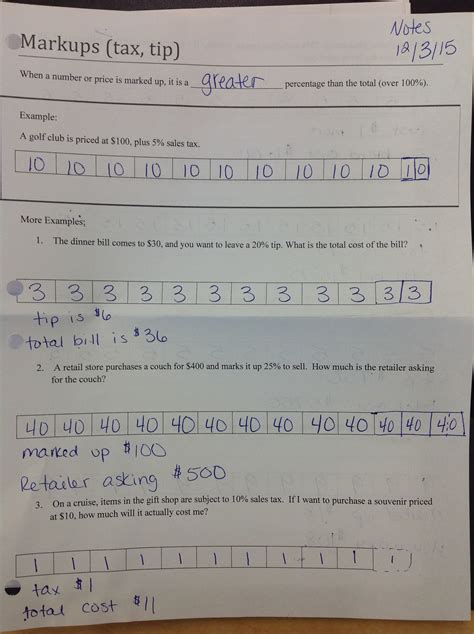 Notes
12/3/15
Markups (tax, tip)
When a number or price is marked up, it is a greater percentage than the total (over 100%).
Example:
A golf club is priced at $100, plus 5% sales tax.
10 10 10 10 10 10 10 10 10 10 10
More Examples:
1. The dinner bill comes to $30, and you want to leave a 20% tip. What is the total cost of the bill?
3 3 3 3 3 3 3 3 3 3 3 3
tip is $6
total bill is $36
2. A retail store purchases a couch for $400 and marks it up 25% to sell. How much is the retailer asking
for the couch?
40 40 40 40 40 40 40 40 40 40 40 40 40
marked up $100
Retailer asking $500
3. On a cruise, items in the gift shop are subject to 10% sales tax. If I want to purchase a souvenir priced
at $10, how much will it actually cost me?
1 1 1 1 1 1 1 1 1 1 1
tax $1
total cost $11